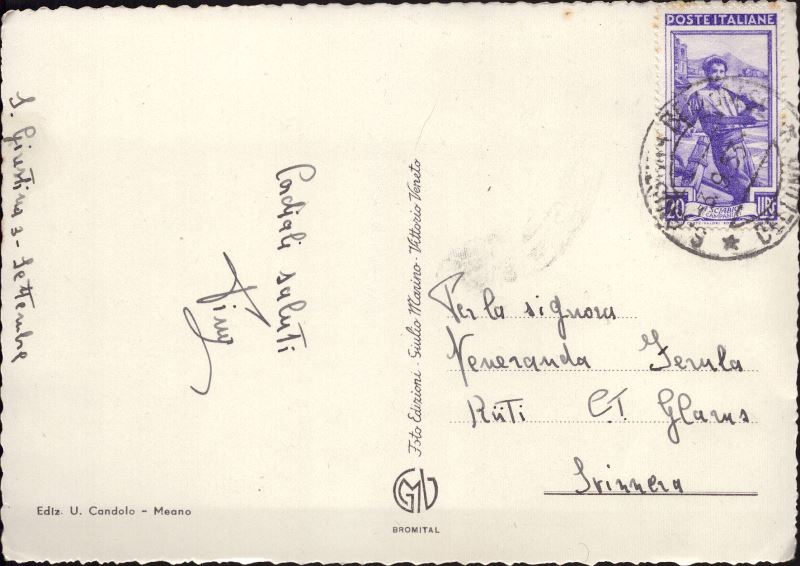 S. Giustina 3 - Settembre
Cordjali saluti
Ediz. U. Candolo - Meano
Foto Edizioni - Giulio Marino - Vittorio Veneto
BROMITAL
POSTE ITALIANE
20 LIRE
Per la signora
Veneranda Ferula
Rüti CT Glarus
Svinnera